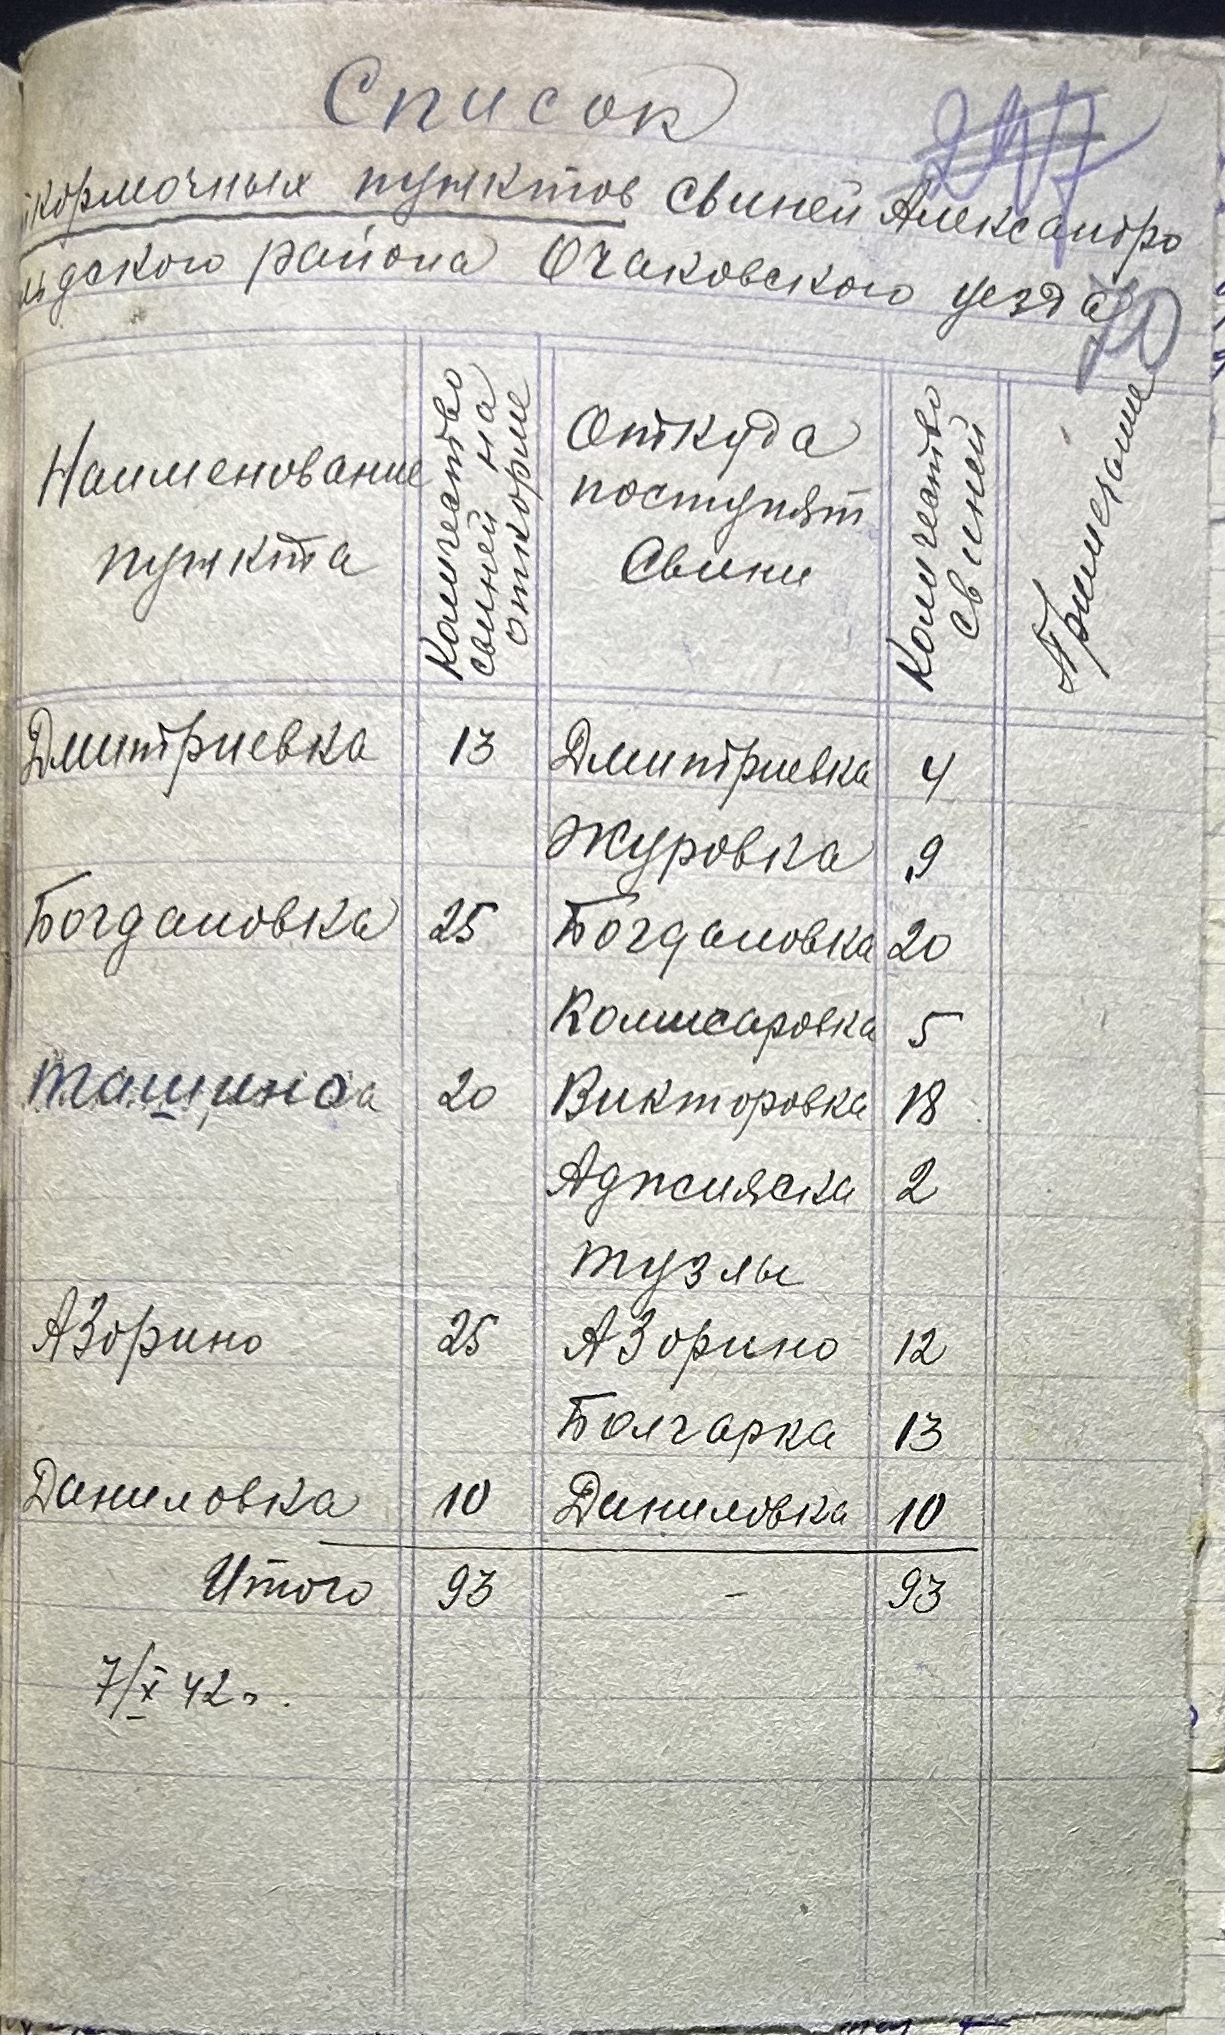 Список
247
кормочных пунктов свиней Александро
дского района Очаковского уезда
70
Наименование пункта | Количество свиней на откорме | Откуда поступят свини | Количество свиней | Примечание
Дмитриевка 13 Дмитриевка 4
Журовка 9
Богдановка 25 Богдановка 20
Комисаровка 5
Ташино 20 Викторовка 18
Аджияска 2
Тузлы
АЗорино 25 АЗорино 12
Болгарка 13
Даниловка 10 Даниловка 10
Итого 93 - 93
7/X 42г.